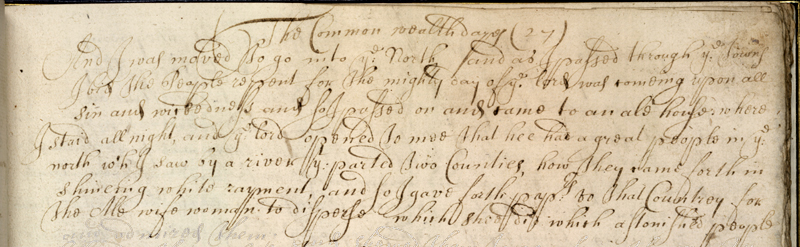 The Common wealth dayes (27)
And I was moved to go into yᵉ North land as I passed through yᵉ Townes
I bid the People repent for the mighty day of yᵉ lord was comeing upon all
sin and wickedness and so I passed on and came to an ale house: where
I staid all night, and yᵉ lord opened to mee that hee had a great people in yᵉ
north wᶜʰ I saw by a river yᵗ parted two Counties, how they came forth in
shineing white rayment, and so I gave forth papʳˢ to that Countrey for
the Ale wife woman to disperse which shee did which astonished people